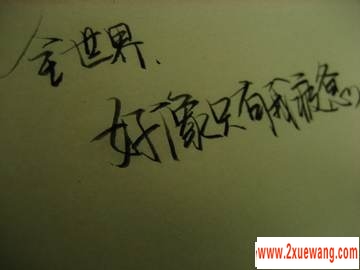 全世界、
好像只有我疲惫
www.2xuewang.com